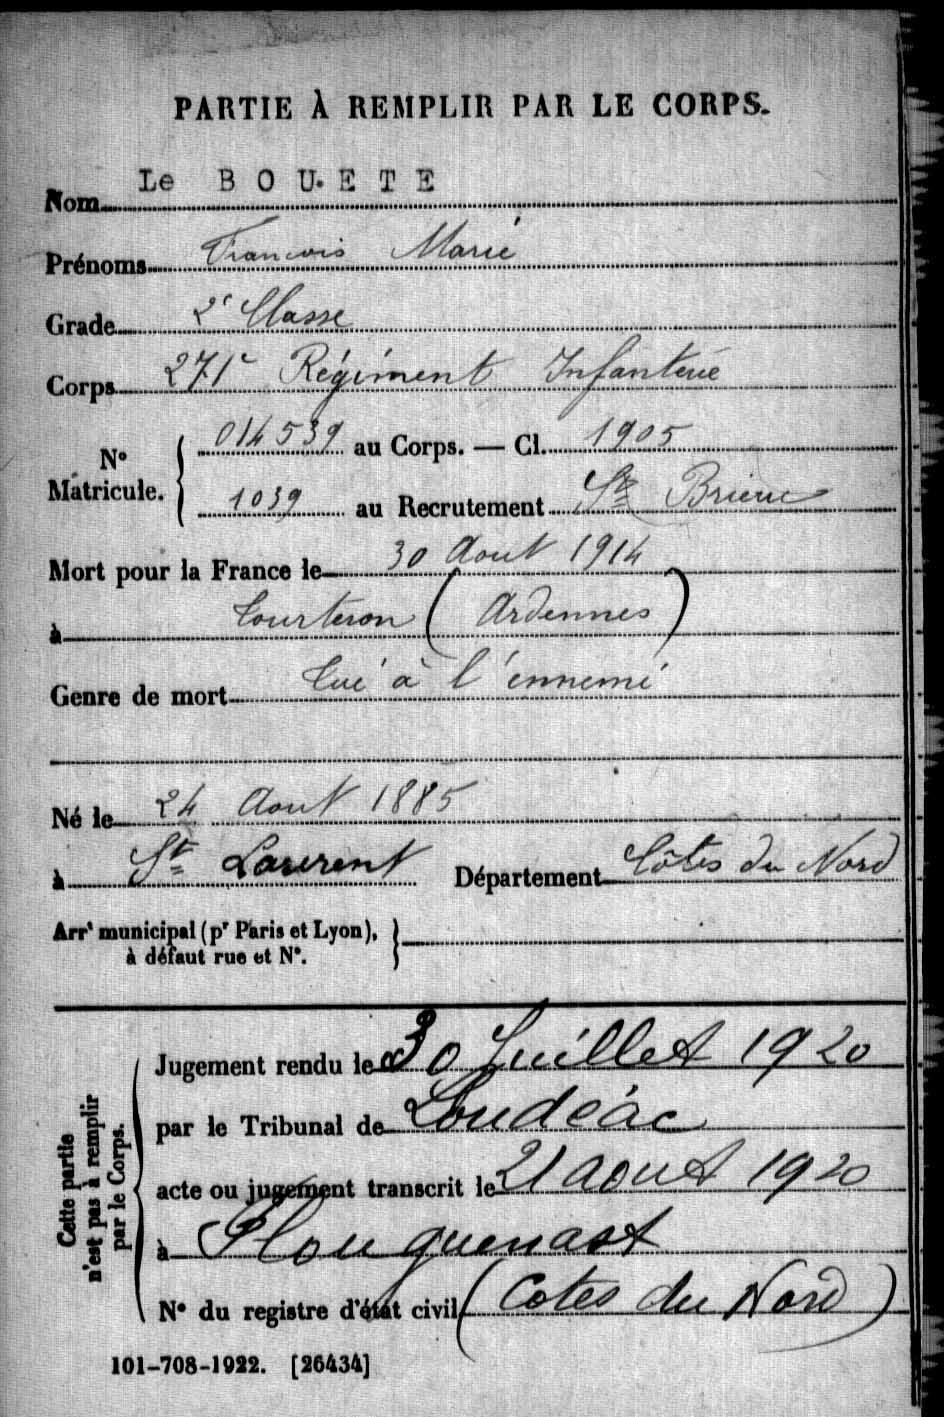 PARTIE À REMPLIR PAR LE CORPS.
Nom Le BOUETE
Prénoms François Marie
Grade 2e Classe
Corps 271e Régiment Infanterie
014539 au Corps. — Cl. 1905
N° Matricule.
1039 au Recrutement St Brieuc
Mort pour la France le 30 Aout 1914
à Tourteron (Ardennes)
Genre de mort Tué à l'ennemi
Né le 24 Aout 1885
à St Laurent Département Côtes du Nord
Arrt municipal (pr Paris et Lyon),
à défaut rue et N°.
Cette partie
n'est pas à remplir
par le Corps.
Jugement rendu le 30 Juillet 1920
par le Tribunal de Loudéac
acte ou jugement transcrit le 21 aout 1920
à Plouguenast
N° du registre d'état civil (Cotes du Nord)
101-708-1922. [26434]